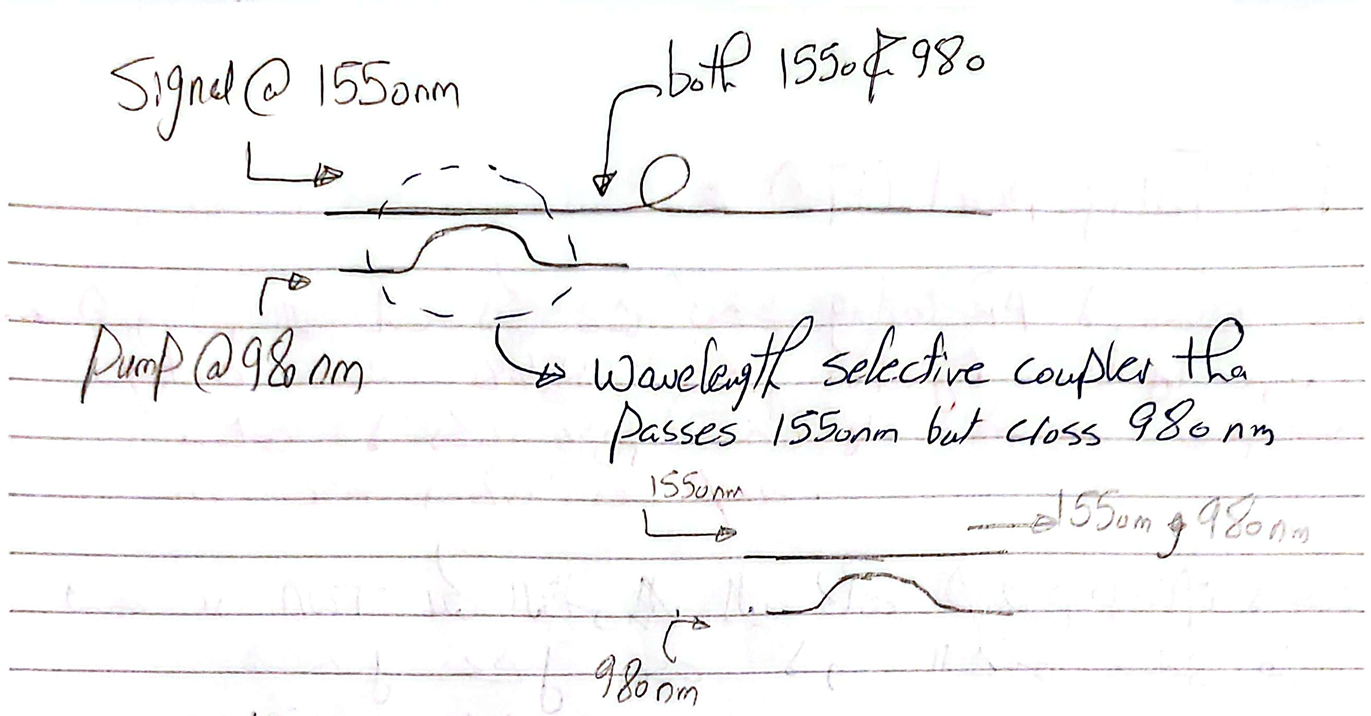 Signal @ 1550nm
both 1550 & 980
Pump @ 980 nm
Wavelength selective coupler tha
Passes 1550nm but cross 980 nm
1550nm
1550m & 980nm
980nm